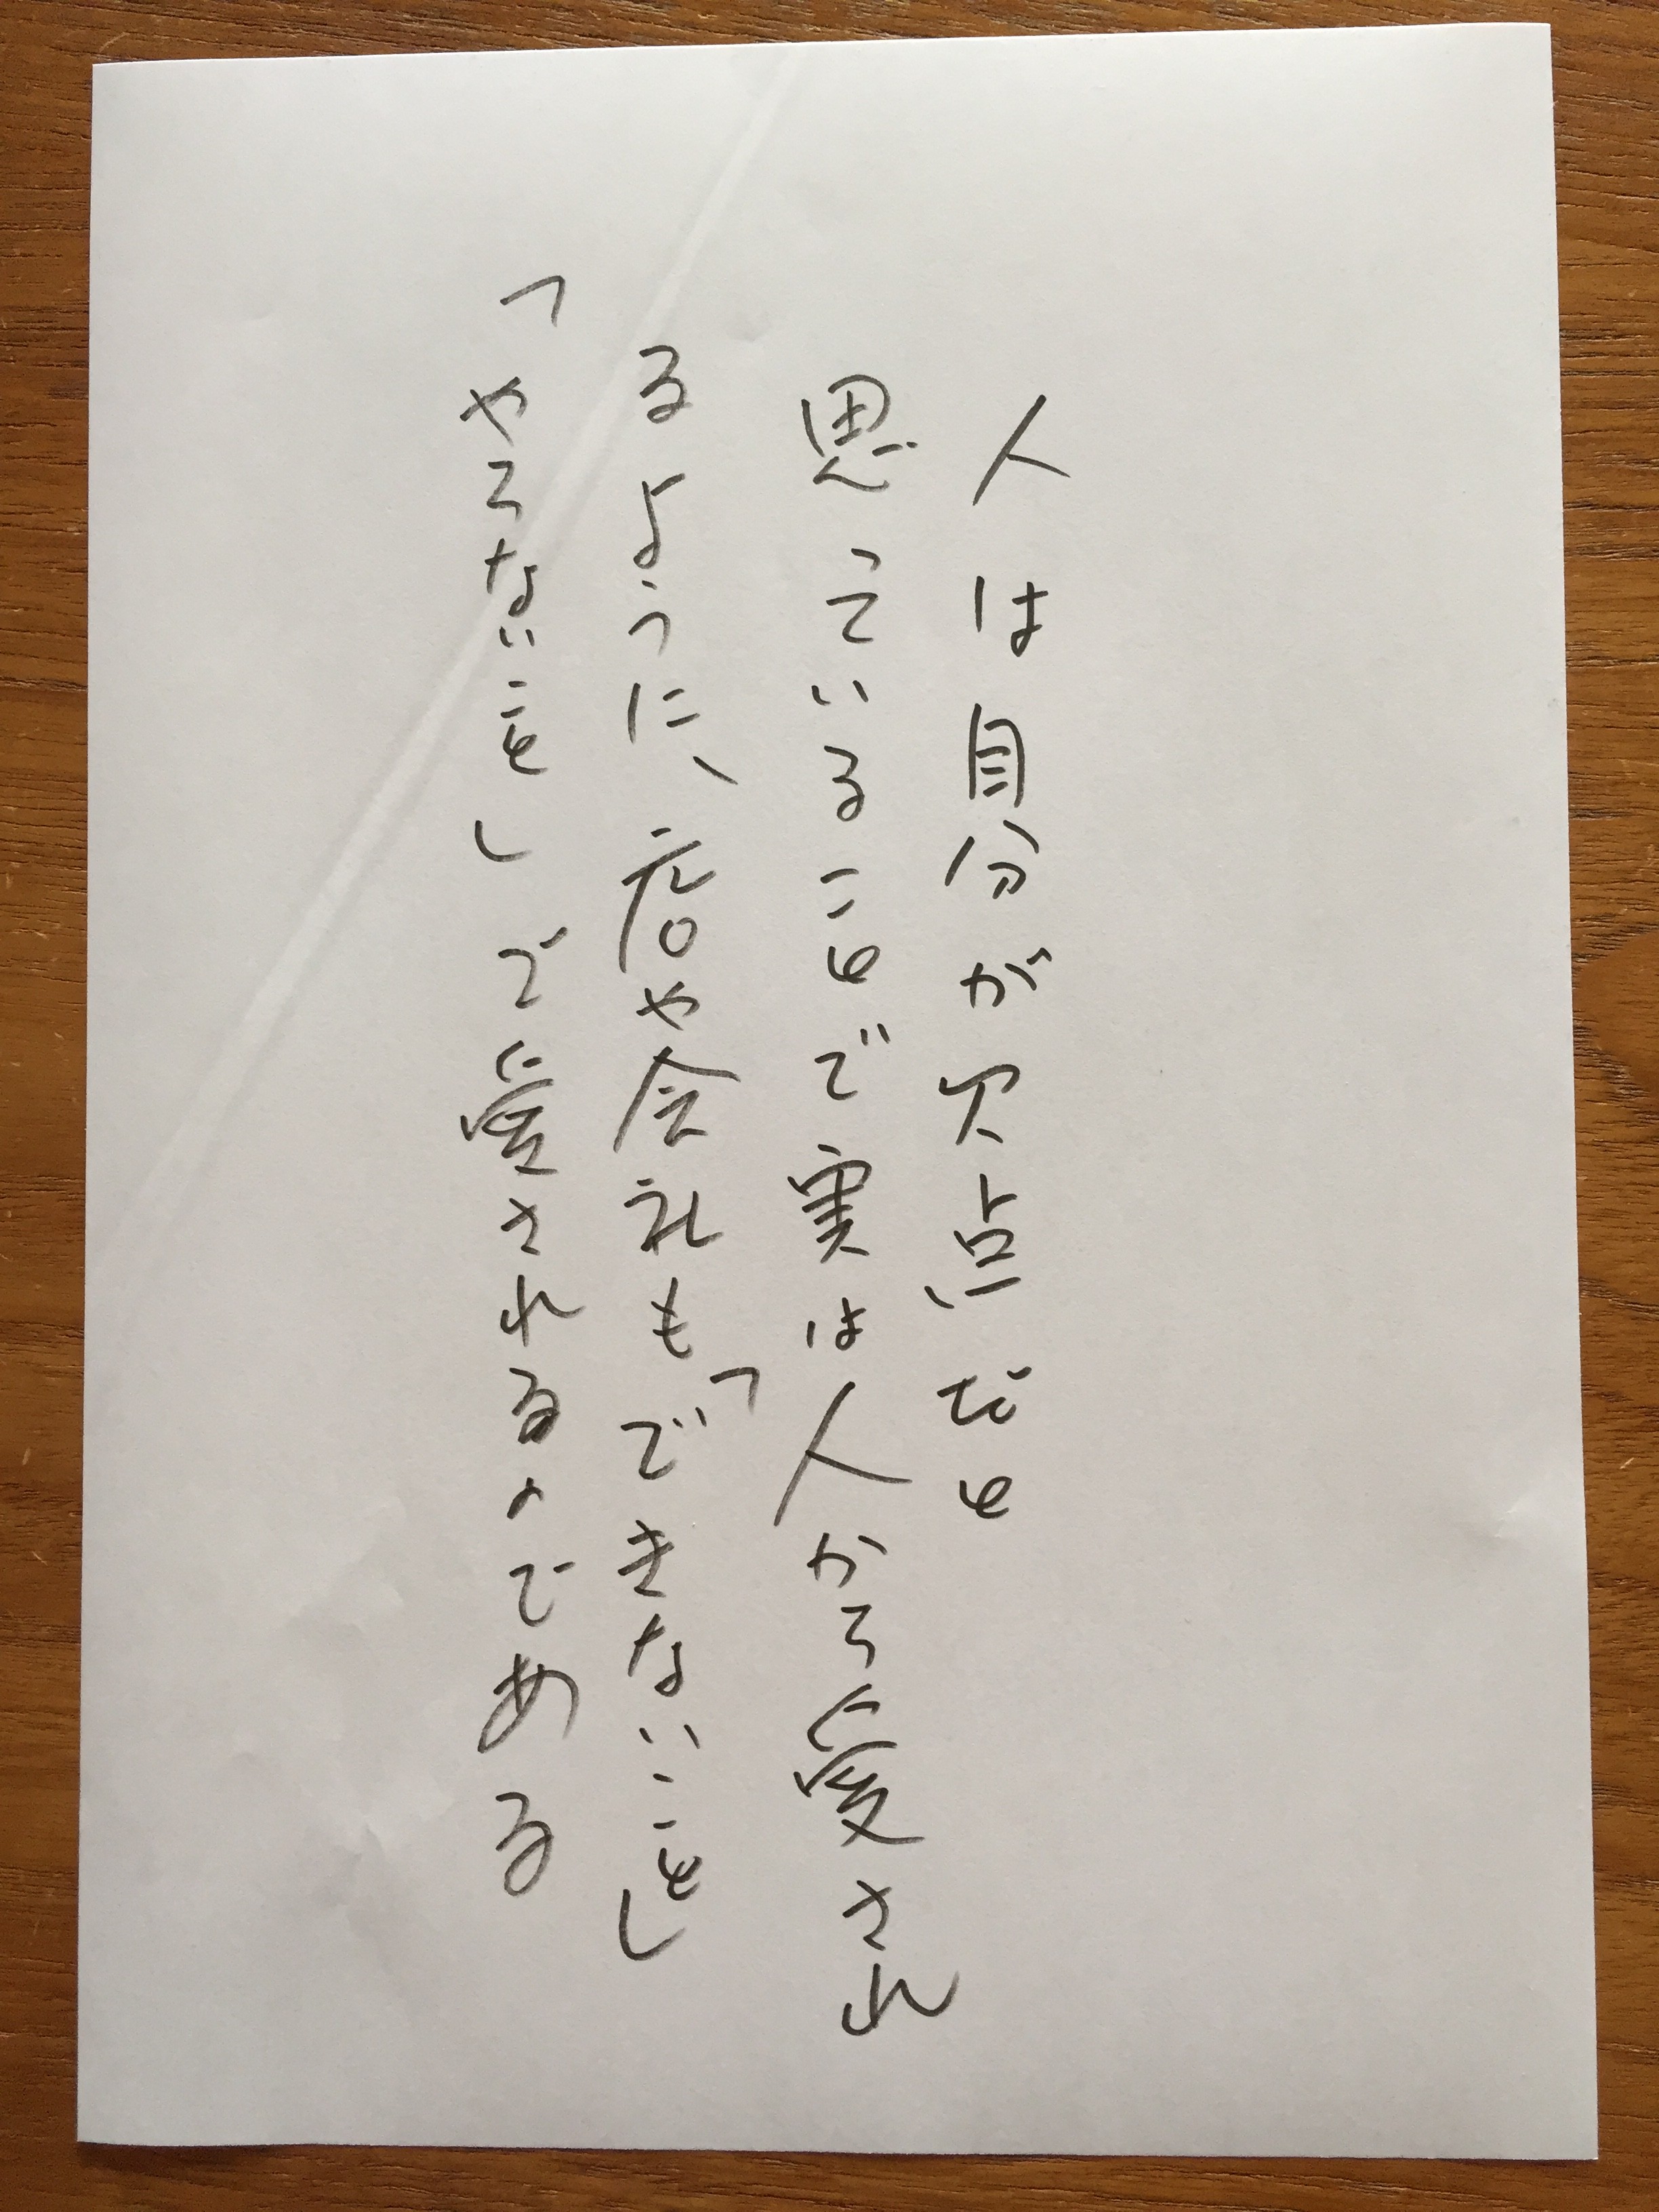 人は自分が欠点だと
思っていることで実は人から愛され
るように、店や会社も「できないこと」
「やらないこと」で愛されるのである